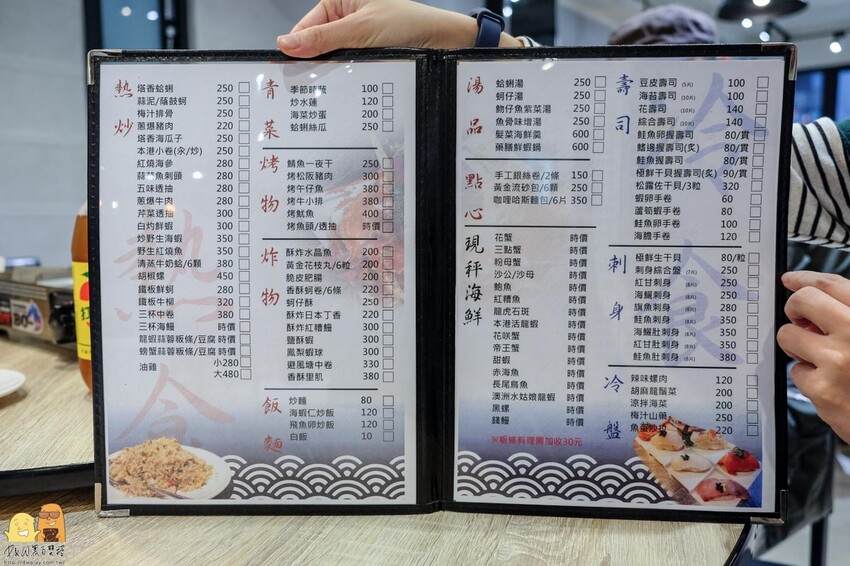 熱炒
塔香蛤蜊 250
蒜泥/蔭鼓蚵 250
梅汁排骨 250
蔥爆豬肉 220
塔香海瓜子 280
本港小卷(汆/炒) 280
紅燒海參 280
蒜苗魚刺頭 280
五味透抽 300
蔥爆牛肉 280
芹菜透抽 300
白灼鮮蝦 300
炒野生海蝦 380
野生紅燒魚 350
清蒸牛奶蛤/6顆 380
胡椒螺 450
鐵板鮮蚵 250
鐵板牛柳 320
三杯中卷 380
三杯海鰻 時價
龍蝦蒜蓉粄條/豆腐 時價
螃蟹蒜蓉粄條/豆腐 時價
油雞 小280
大480
青菜
季節時蔬 100
炒水蓮 120
海菜炒蛋 200
蛤蜊絲瓜 250
烤物
鯖魚一夜干 250
烤松阪豬肉 300
烤午仔魚 380
烤牛小排 380
烤魷魚 400
烤魚頭/透抽 時價
炸物
酥炸水晶魚 200
黃金花枝丸/6粒 200
脆皮肥腸 200
香酥蚵卷/6條 220
蚵仔酥 250
酥炸日本丁香 220
酥炸紅糟鰻 300
鹽酥蝦 300
鳳梨蝦球 300
避風塘中卷 330
香酥里肌 380
飯麵
炒麵 80
海蝦仁炒飯 120
飛魚卵炒飯 120
白飯 10
湯品
蛤蜊湯 250
蚵仔湯 250
魩仔魚紫菜湯 250
魚骨味增湯 250
髮菜海鮮羹 600
藥膳鮮蝦鍋 600
點心
手工銀絲卷/2條 150
黃金流砂包/6顆 250
咖哩哈斯麵包/6片 350
現秤海鮮
花蟹 時價
三點蟹 時價
粉母蟹 時價
沙公/沙母 時價
鮑魚 時價
紅糟魚 時價
龍虎石斑 時價
本港活龍蝦 時價
花咲蟹 時價
帝王蟹 時價
甜蝦 時價
赤海魚 時價
長尾鳥魚 時價
澳洲水姑娘龍蝦 時價
黑螺 時價
錢鰻 時價
※粄條料理需加收30元
壽司
豆皮壽司 (5片) 100
海苔壽司 (10片) 100
花壽司 (10片) 140
綜合壽司 (10片) 140
鮭魚卵握壽司 80/貫
鰭邊握壽司(炙) 80/貫
鮭魚握壽司 80/貫
極鮮干貝握壽司(炙) 90/貫
松露佐干貝/3粒 320
蝦卵手卷 60
蘆筍蝦手卷 80
鮭魚卵手卷 100
海膽手卷 120
刺身
極鮮生干貝 80/粒
刺身綜合盤 (7片) 250
紅甘刺身 (8片) 250
海鱺刺身 (8片) 250
旗魚刺身 (8片) 250
鮭魚刺身 (8片) 250
海鱺肚刺身 (8片) 350
紅甘肚刺身 (8片) 350
鮭魚肚刺身 (8片) 350
冷盤
辣味螺肉 120
胡麻龍鬚菜 200
涼拌海菜 200
梅汁山藥 200
220
今
食
熱
食
今